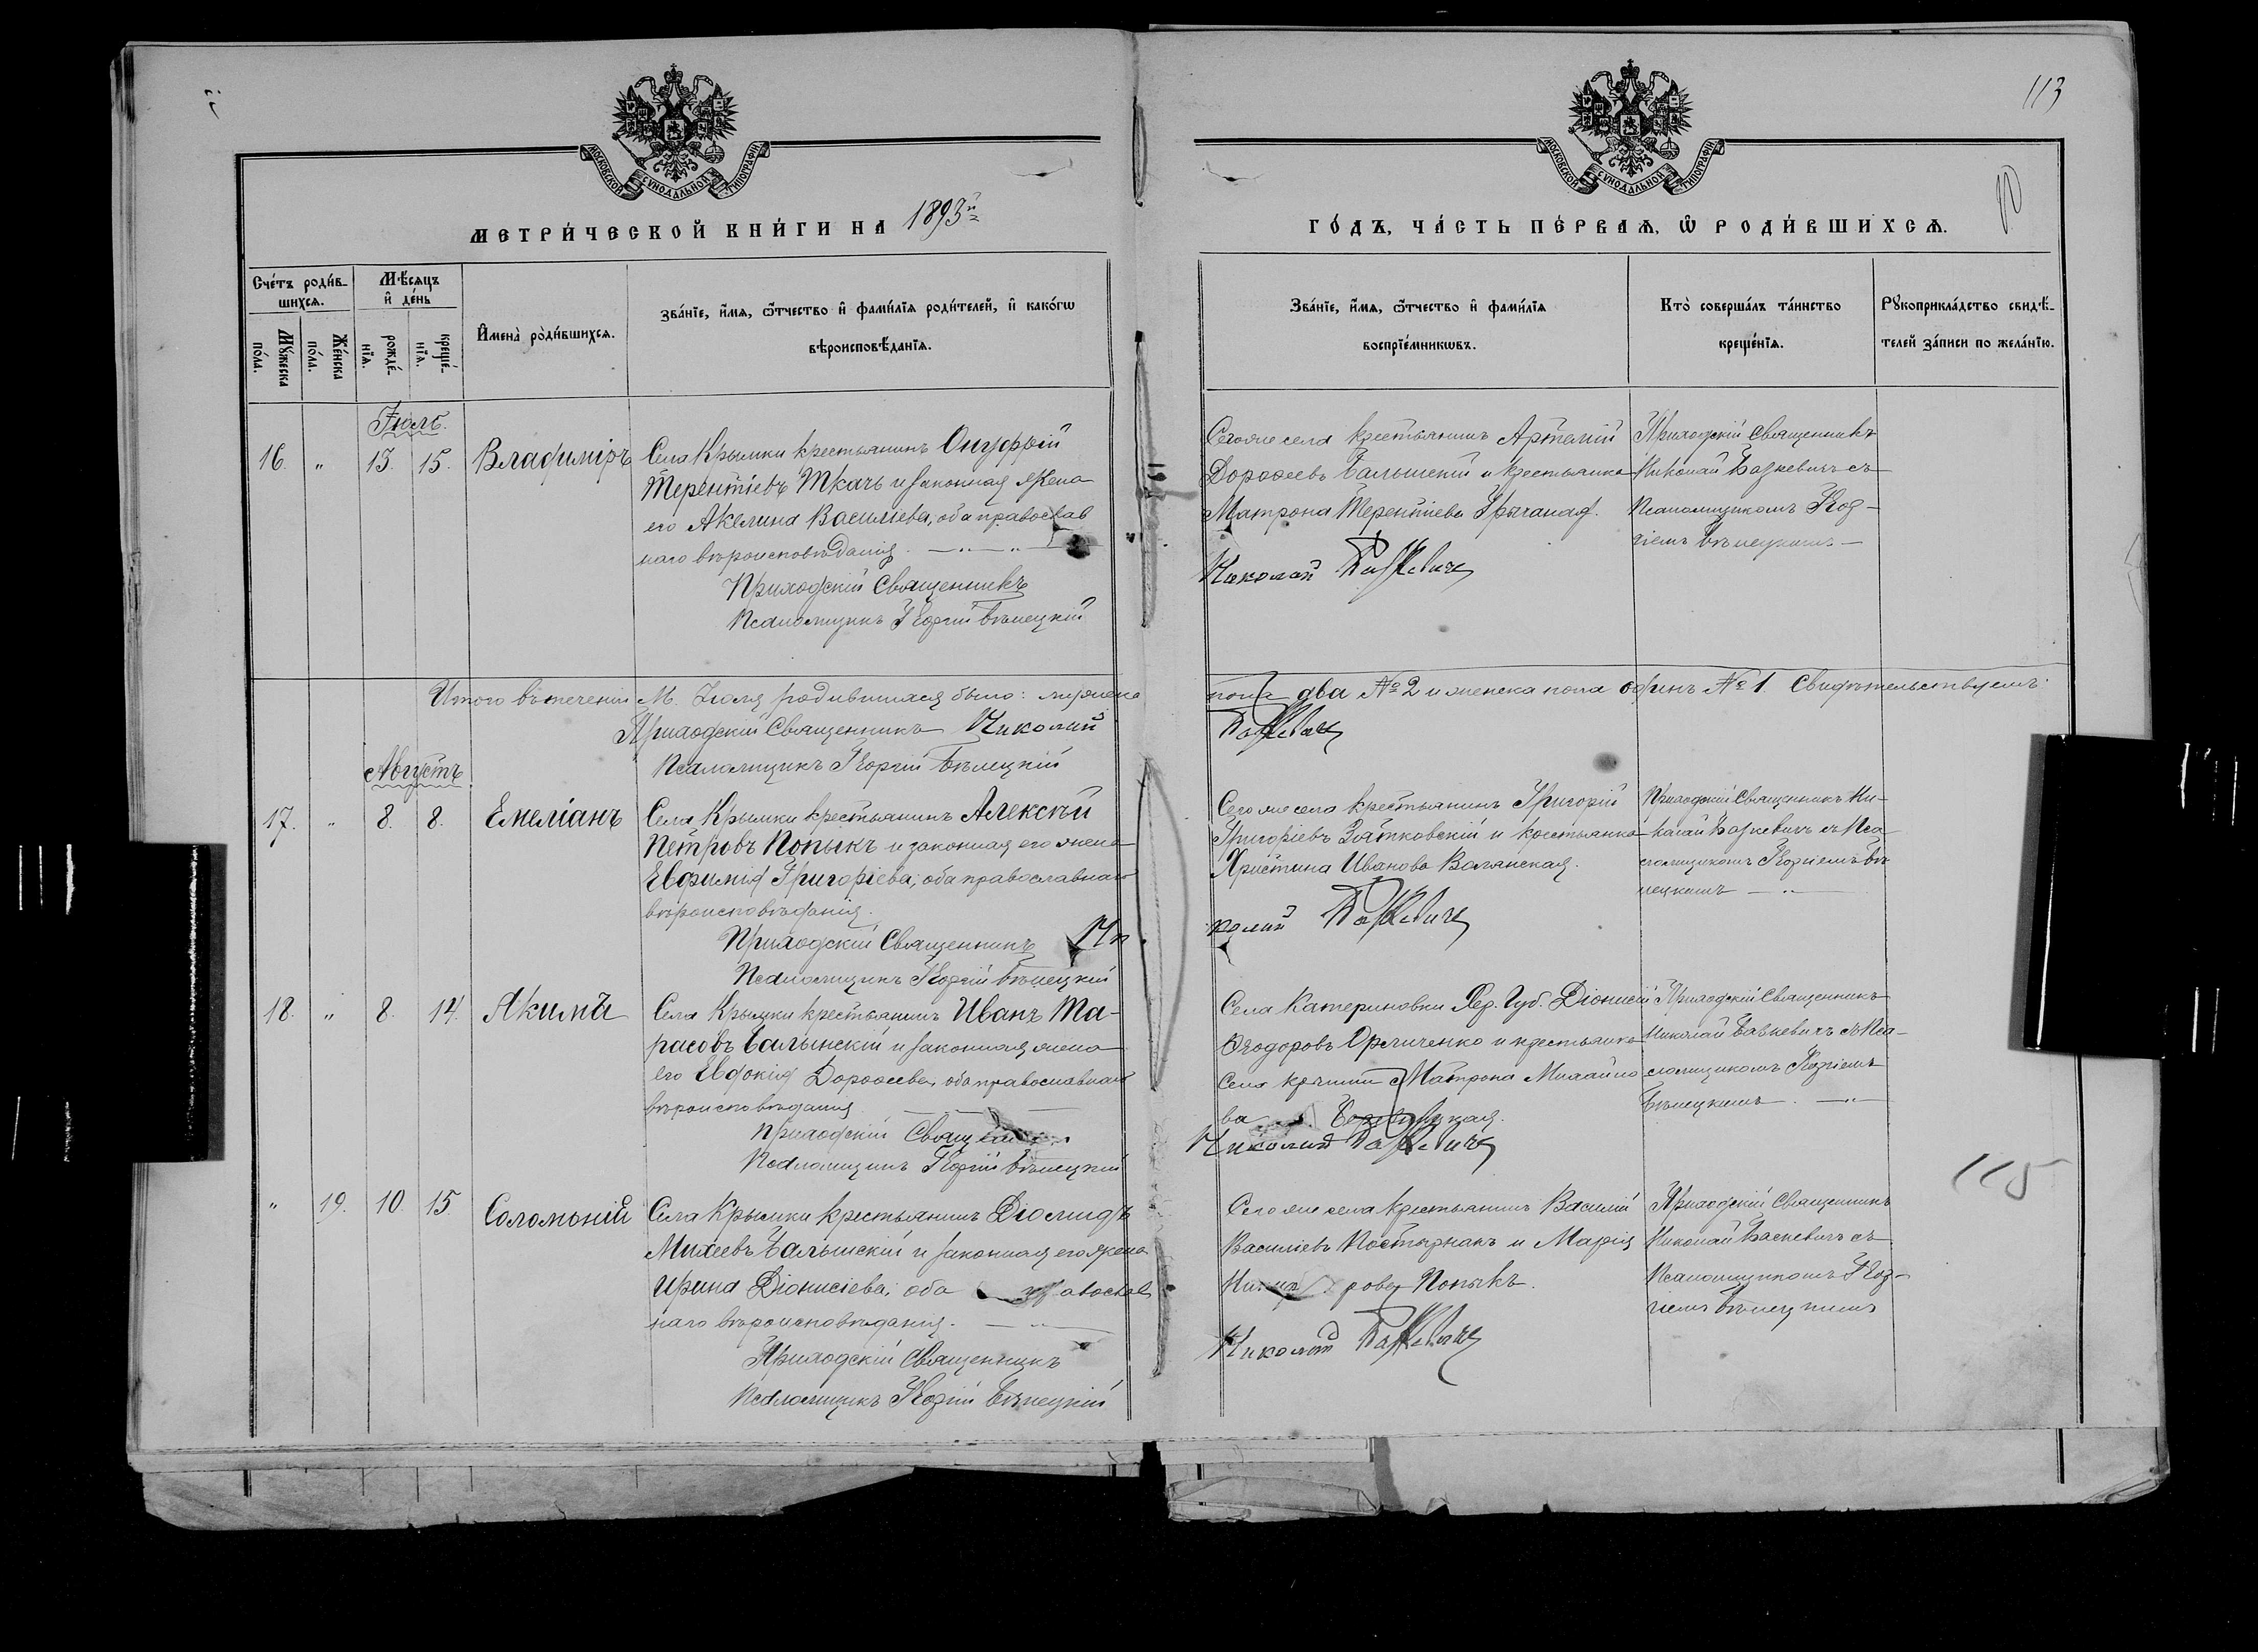 113
10
МОСКОВСКОЙ СУНОДАЛЬНОЙ ТИПОГРАФІИ
МОСКОВСКОЙ СУНОДАЛЬНОЙ ТИПОГРАФІИ
МЕТРИ́ЧЕСКОЙ КНИ́ГИ НА 1893й
ГО́ДЪ, ЧА́СТЬ ПЕ́РВАѦ, Ѽ РОДИ́ВШИХСѦ.
Сче́тъ роди́в-
шихсѧ.
Мꙋ́жеска
по́ла.
Же́нска
по́ла.
Мѣ́сѧцъ
и҆ де́нь
рожде́-
нїѧ.
креще́-
нїѧ.
И҆мена̀ роди́вшихсѧ.
Зва́нїе, и҆́мѧ, ѻ҆́тчество и҆ фами́лїѧ роди́телей, и҆ како́гѡ
вѣроисповѣ́данїѧ.
Зва́нїе, и҆́мѧ, ѻ҆́тчество и҆ фами́лїѧ
воспрїе́мникѡвъ.
Кто̀ соверша́лъ та́инство
креще́нїѧ.
Рꙋкоприкла́дство свидѣ́-
телей за́писи по жела́нїю.
Іюль.
16. „ 13. 15. Владиміръ
Села Крымки крестьянинъ Онуфрій
Терентіевъ Ткачъ и законная жена
его Акилина Василіева, оба православ
наго вѣроисповѣданія.
Приходскій Священникъ
Псаломщикъ Георгій Бѣлецкій
Сегоже села крестьянинъ Артемій
Дорофеевъ Балынскій и крестьянка
Матрона Терентіева
Николай Базкевичъ
Приходскій Священникъ
Николай Базкевичъ съ
Псаломщикомъ Геор-
гіемъ Бѣлецкимъ
Итого въ теченіи М. Іюля родившихся было: мужеска
пола два № 2 и женска пола одинъ № 1. Свидѣтельствуемъ:
Приходскій Священникъ Николай
Базкевичъ
Псаломщикъ Георгій Бѣлецкій
Августъ
17. „ 8. 8. Емеліанъ
Села Крымки крестьянинъ Алексѣй
Петровъ Попыкъ и законная его жена
Евфимія Григоріева, оба православнаго
вѣроисповѣданія.
Приходскій Священникъ Ни
Псаломщикъ Георгій Бѣлецкій
Сегоже села крестьянинъ Григорій
Григоріевъ Зятковскій и крестьянка
Христина Иванова Волянская.
колай Базкевичъ
Приходскій Священникъ Ни-
колай Базкевичъ съ Пса
ломщикомъ Георгіемъ Бѣ
лецкимъ
18. „ 8. 14. Акимъ
Села Крымки крестьянинъ Иванъ Та-
расовъ Балынскій и законная жена
его Евдокія Дорофеева, оба православнаго
вѣроисповѣданія
Приходскій Священ
Псаломщикъ Георгій Бѣлецкій
Села Катериновки Хер. Губ. Діонисій
Ѳеодоровъ Орличенко и крестьянка
села Крымки Матрона Михайло
ва
Николай Базкевичъ
Приходскій Священникъ
Николай Базкевичъ съ Пса-
ломщикомъ Георгіемъ
Бѣлецкимъ.
115
„ 19. 10. 15. Соломонія
Села Крымки крестьянинъ Діомидъ
Михеевъ Балынскій и законная его жена
Ирина Діонисіева, оба православ
наго вѣроисповѣданія.
Приходскій Священникъ
Псаломщикъ Георгій Бѣлецкій
Сегоже села крестьянинъ Василій
Василіевъ Постырнакъ и Марія
рова Попыкъ.
Николай Базкевичъ
Приходскій Священникъ
Николай Базкевичъ съ
Псаломщикомъ Геор-
гіемъ Бѣлецкимъ